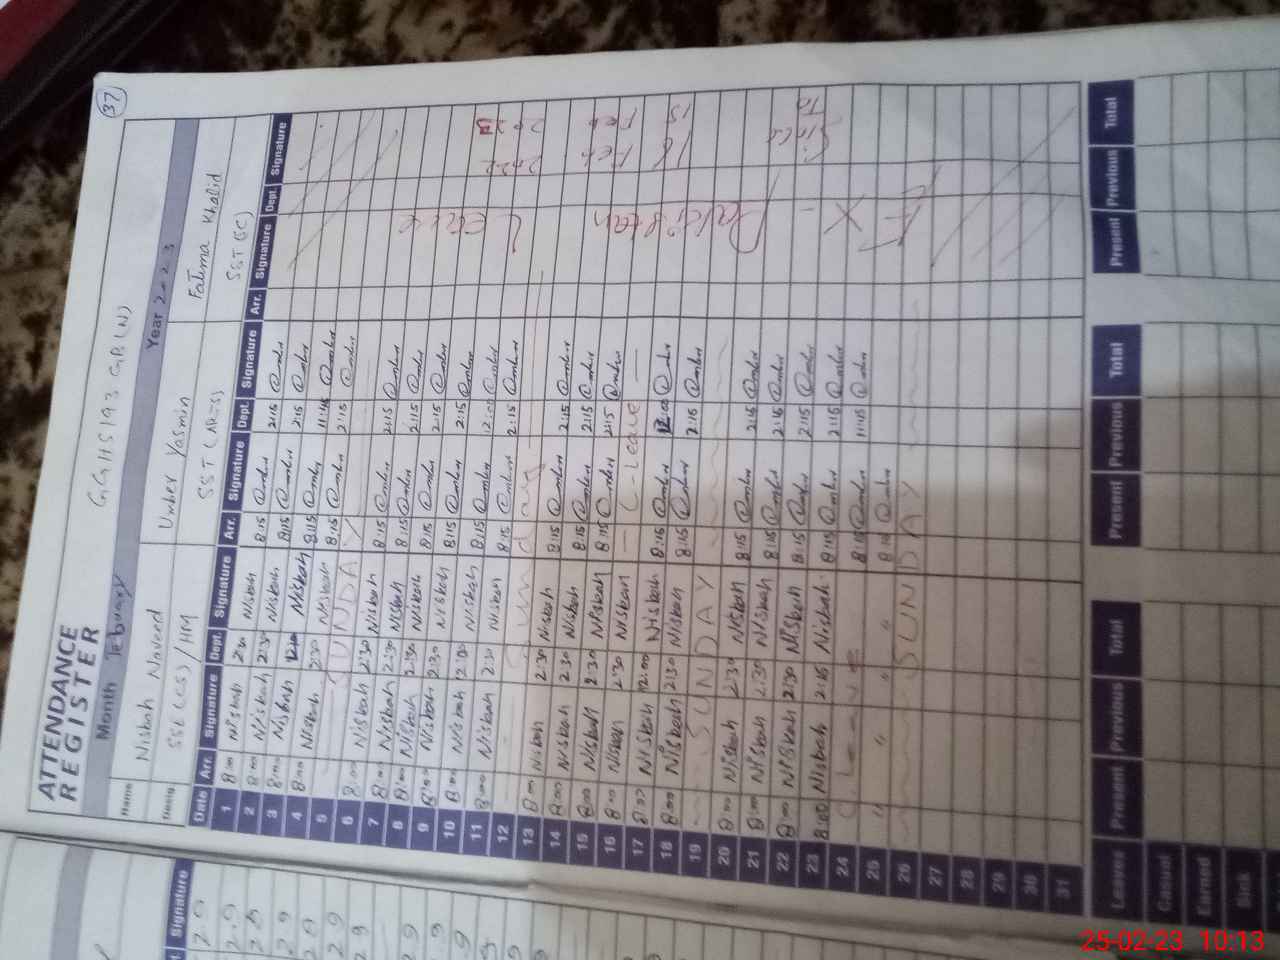 37
ATTENDANCE REGISTER
GGHS 193 GB (N)
Month Febuary Year 2023
Name Nisbah Naveed Umber Yasmin Fatima Khalid
Desig. SST (CS) / HM SST (AR=S) SST (SC)
Date Arr. Signature Dept. Signature Arr. Signature Dept. Signature Arr. Signature Dept. Signature
1 8:00 Nisbah 2:30 Nisbah 8:15 Umber 2:15 Umber
2 8:00 Nisbah 2:30 Nisbah 8:15 Umber 2:15 Umber
3 8:00 Nisbah 12:00 Nisbah 8:15 Umber 11:45 Umber
4 8:00 Nisbah 2:30 Nisbah 8:15 Umber 2:15 Umber
5 SUNDAY
6 8:00 Nisbah 2:30 Nisbah 8:15 Umber 2:15 Umber
7 8:00 Nisbah 2:30 Nisbah 8:15 Umber 2:15 Umber
8 8:00 Nisbah 2:30 Nisbah 8:15 Umber 2:15 Umber
9 8:00 Nisbah 2:30 Nisbah 8:15 Umber 2:15 Umber
10 8:00 Nisbah 12:00 Nisbah 8:15 Umber 12:00 Umber
11 8:00 Nisbah 2:30 Nisbah 8:15 Umber 2:15 Umber
12 Sunday
13 8:00 Nisbah 2:30 Nisbah 8:15 Umber 2:15 Umber
14 8:00 Nisbah 2:30 Nisbah 8:15 Umber 2:15 Umber
15 8:00 Nisbah 2:30 Nisbah 8:15 Umber 2:15 Umber
16 8:00 Nisbah 2:30 Nisbah C-Leave
17 8:00 Nisbah 12:00 Nisbah 8:15 Umber 12:00 Umber
18 8:00 Nisbah 2:30 Nisbah 8:15 Umber 2:15 Umber
19 SUNDAY
20 8:00 Nisbah 2:30 Nisbah 8:15 Umber 2:15 Umber
21 8:00 Nisbah 2:30 Nisbah 8:15 Umber 2:15 Umber
22 8:00 Nisbah 2:30 Nisbah 8:15 Umber 2:15 Umber
23 8:00 Nisbah 2:15 Nisbah 8:15 Umber 2:15 Umber
24 8:15 Umber 11:45 Umber
25 " " " 8:15 Umber
26 SUNDAY
27
28
29
30
31
EX-Pakistan Leave
Since 16 Feb 2022
To 15 Feb 2023
Leaves Present Previous Total Present Previous Total Present Previous Total
Casual
Earned
Sick
Signature
25-02-23 10:13